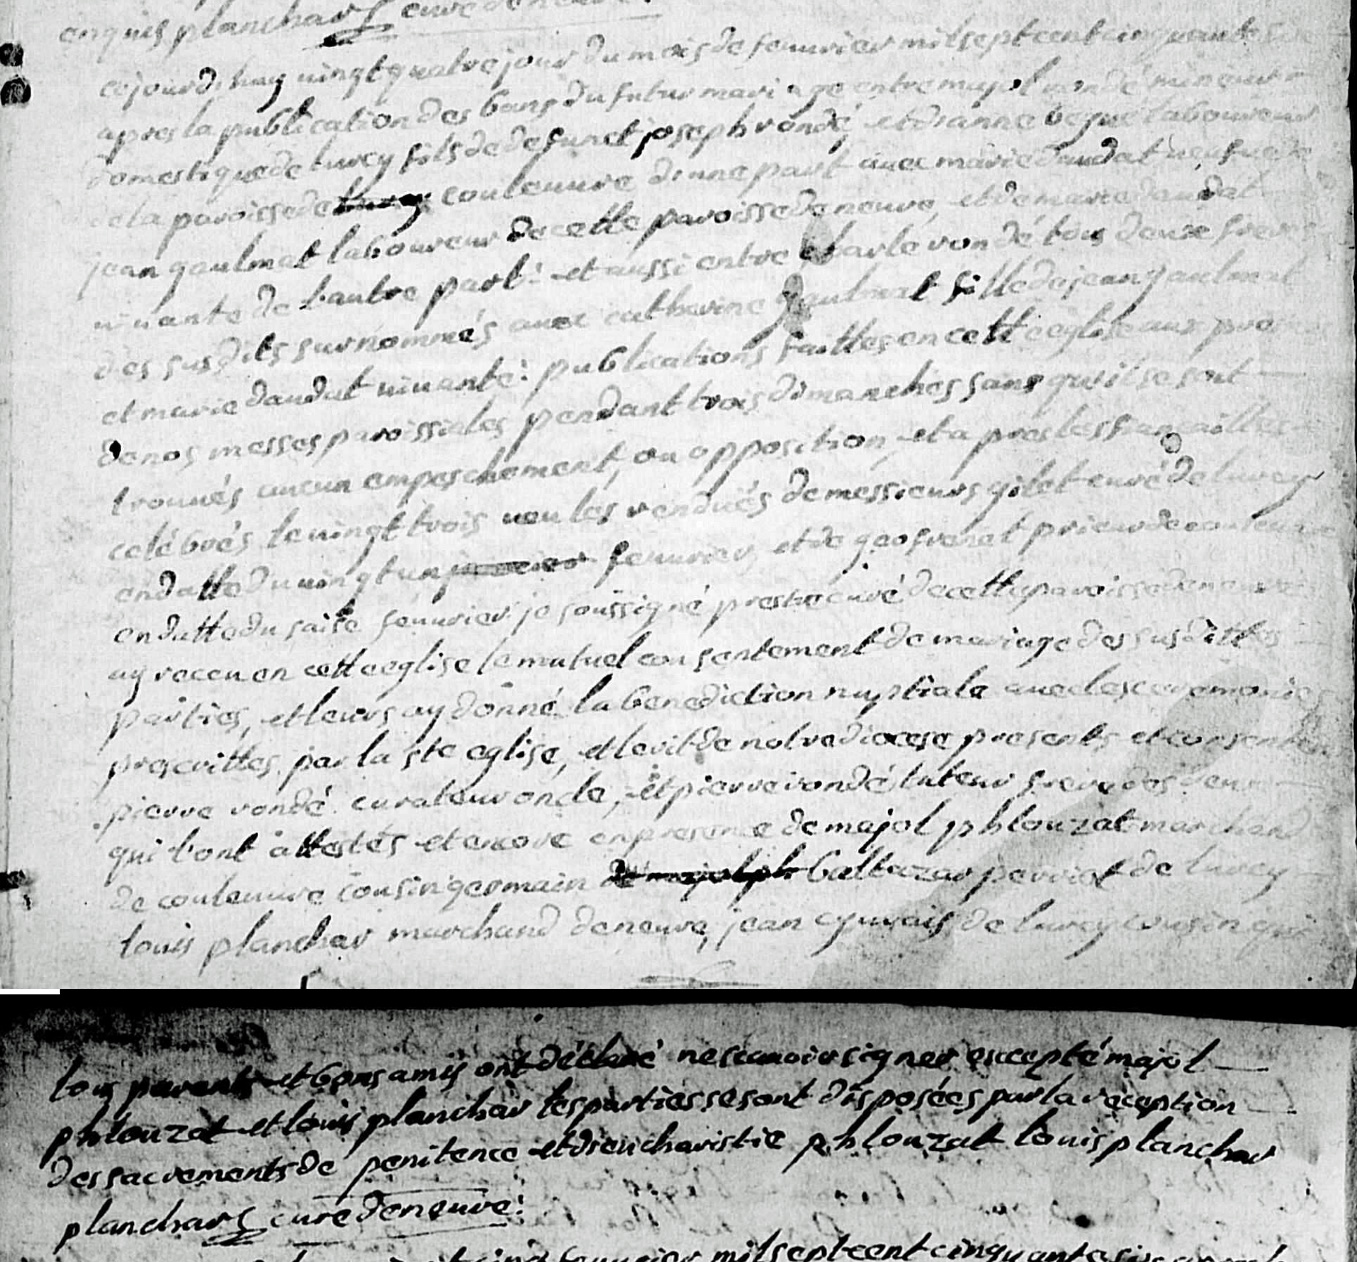 enquis planchars curé deneuvre.
cejourdhuy vingt quatre jour du mois de feuvrier mil sept cent cinquante six
apres la publication des bans du futur mariage entre majol rondé mineur
domestique de lurcy fils de defunct joseph rondé et dianne begué laboureur
de la paroisse de couleuvre dunne part avec marie daudat veufve de
jean gaulmat laboureur de cette paroisse deneuvre, et de marie daudat
vivante de l'autre part: et aussi entre charle rondé tous deux freres
des susdits surnommés avec catherine gaulmat fille de jean gaulmat
et marie daudat vivante: publications faittes en cette eglise aux prosnes
de nos messes paroissiales pendant trois dimanches sans qu'il se soit
trouvés aucun empeschement, ou opposition, et apres les fiancailles
celébrés le vingt trois veu les rendués de messieurs gilet curé de lurcy
en datte du vingt un feuvrier, et de geofrenet prieur de couleuvre
en datte du saise feuvrier je soussigné prestre curé de cette paroisse deneuvre
ay receu en cette eglise le mutuel consentement de mariage des susdittes
parties, et leurs ay donné la benediction nuptiale avec les ceremonies
prescrittes par la ste eglise, et le rit de notre diocese presents et consentens
pierre rondé curateur oncle, et pierre rondé tuteur frere des deux
qui l'ont attestés et encore en presence de majol phlouzat marchand
de couleuvre cousin germain baltazar perriot de lurcy
louis planchar marchand deneuvre, jean cyuvais de lurcy cousin qui
tous parents et bons amis ont déclaré ne scavoir signer excepté majol
phlouzat et louis planchar les parties se sont disposées par la réception
des sacrements de penitence et d'eucharistie phlouzat louis planchar
planchars curé deneuvre:
feuvrier mil sept cent cinquante six